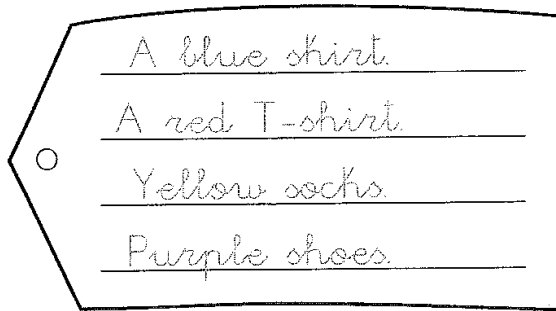 A blue shirt.
A red T-shirt.
Yellow socks.
Purple shoes.